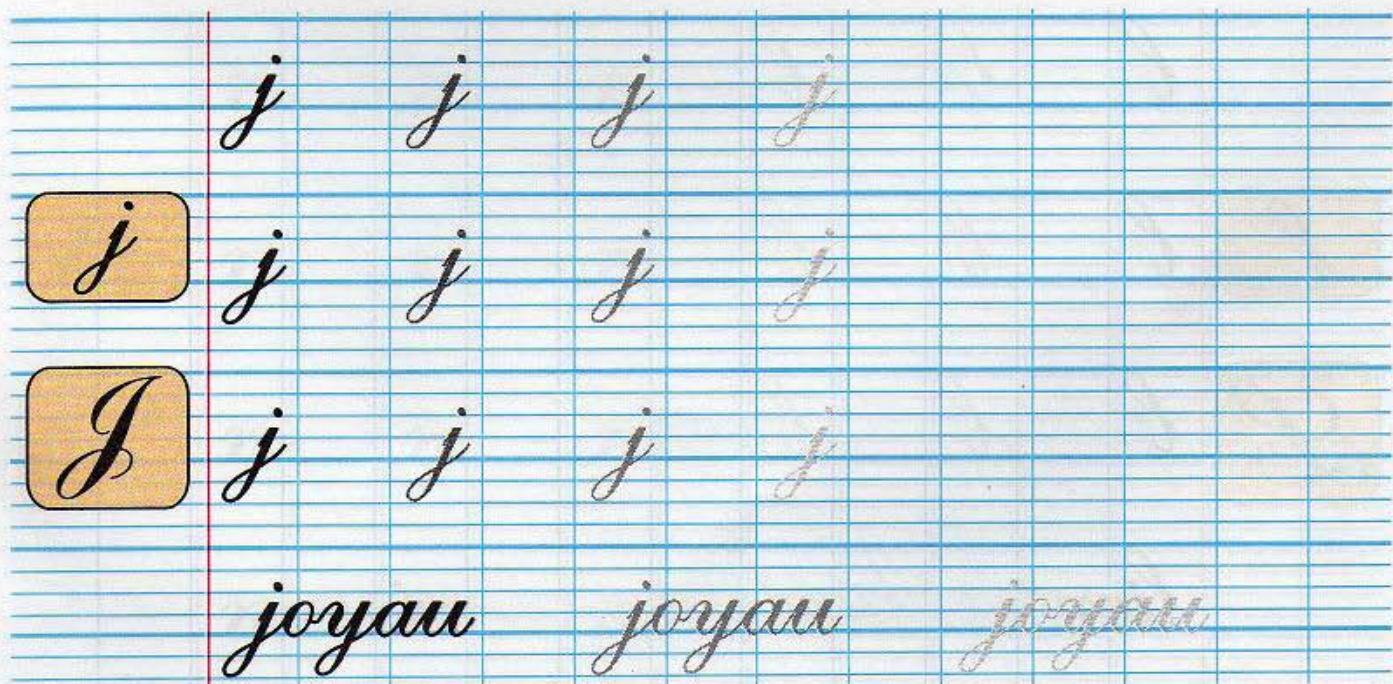 j j j j
j
j j j j
J
j j j j
joyau joyau joyau